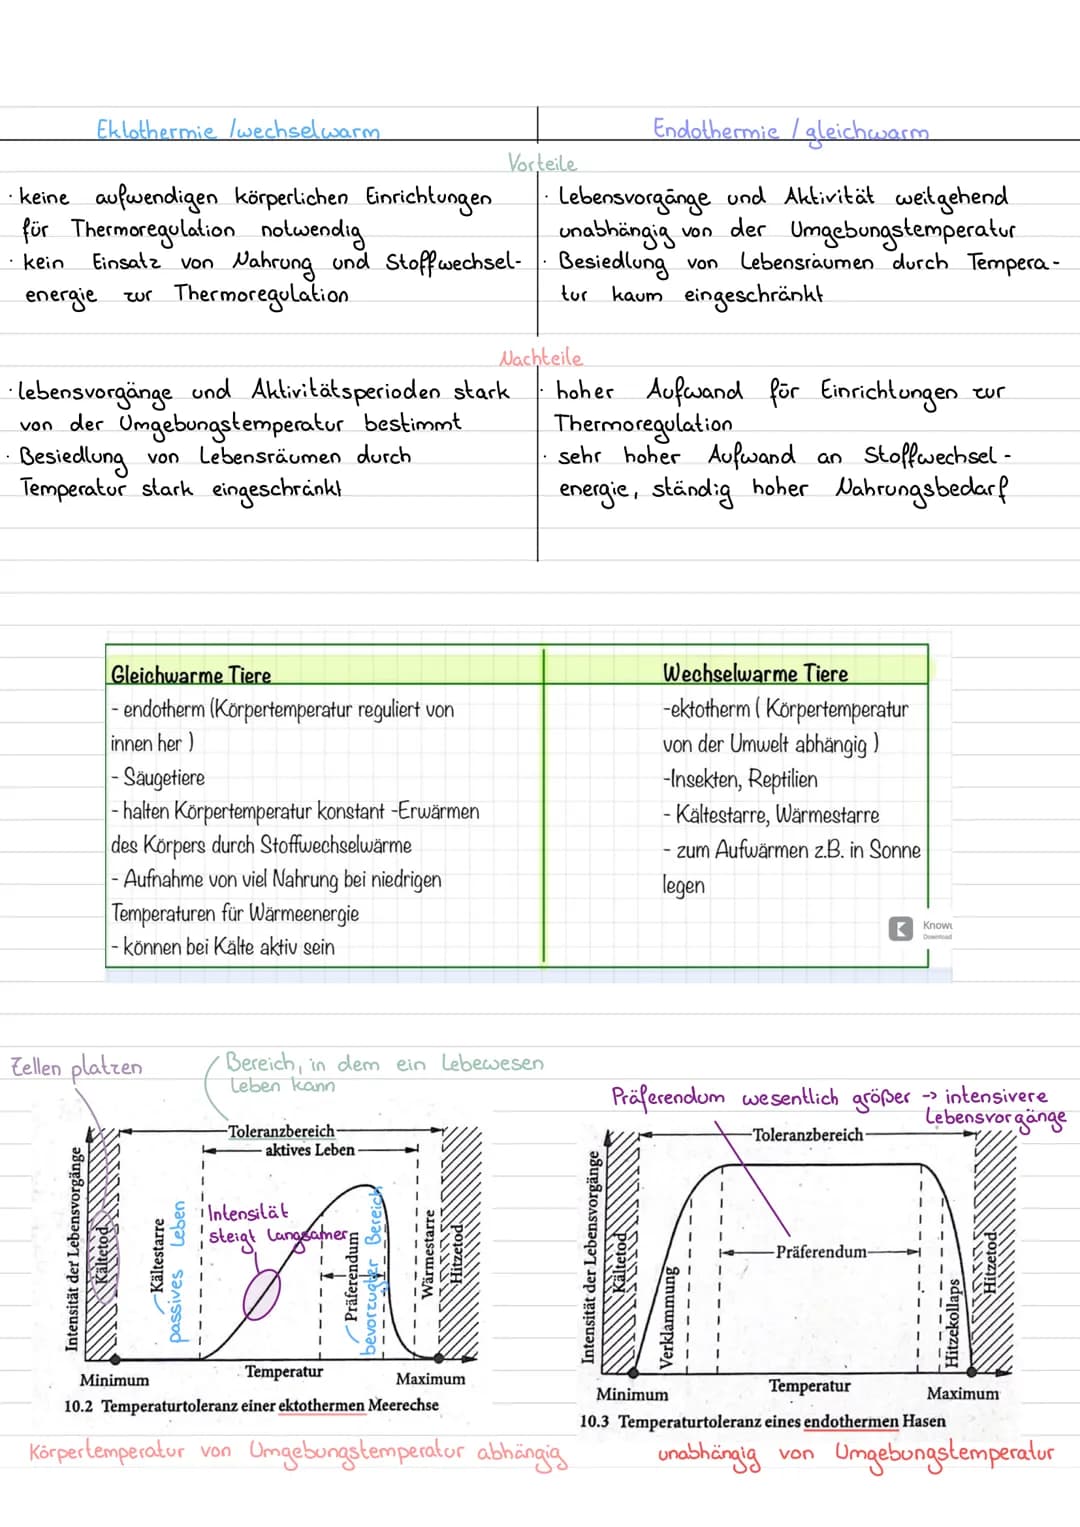 Ektothermie /wechselwarm
Endothermie / gleichwarm
Vorteile
· keine aufwendigen körperlichen Einrichtungen
für Thermoregulation notwendig
· kein Einsatz von Nahrung und Stoffwechsel-
energie zur Thermoregulation
· Lebensvorgänge und Aktivität weitgehend
unabhängig von der Umgebungstemperatur
· Besiedlung von Lebensräumen durch Tempera-
tur kaum eingeschränkt
Nachteile
· lebensvorgänge und Aktivitätsperioden stark
von der Umgebungstemperatur bestimmt
· Besiedlung von Lebensräumen durch
Temperatur stark eingeschränkt
· hoher Aufwand für Einrichtungen zur
Thermoregulation
· sehr hoher Aufwand an Stoffwechsel-
energie, ständig hoher Nahrungsbedarf
Gleichwarme Tiere
- endotherm (Körpertemperatur reguliert von
innen her )
- Säugetiere
- halten Körpertemperatur konstant -Erwärmen
des Körpers durch Stoffwechselwärme
- Aufnahme von viel Nahrung bei niedrigen
Temperaturen für Wärmeenergie
- können bei Kälte aktiv sein
Wechselwarme Tiere
-ektotherm ( Körpertemperatur
von der Umwelt abhängig )
-Insekten, Reptilien
- Kältestarre, Wärmestarre
- zum Aufwärmen z.B. in Sonne
legen
Know
Download
Zellen platzen
Bereich, in dem ein Lebewesen
leben kann
Toleranzbereich
aktives Leben
Intensität der Lebensvorgänge
Kältetod
Kältestarre
passives Leben
Intensität
steigt langsamer
Präferendum
bevorzugter Bereich
Wärmestarre
Hitzetod
Minimum
Temperatur
Maximum
10.2 Temperaturtoleranz einer ektothermen Meerechse
Körpertemperatur von Umgebungstemperatur abhängig
Präferendum wesentlich größer -> intensivere
Lebensvorgänge
Toleranzbereich
Intensität der Lebensvorgänge
Kältetod
Verklammung
Präferendum
Hitzekollaps
Hitzetod
Minimum
Temperatur
Maximum
10.3 Temperaturtoleranz eines endothermen Hasen
unabhängig von Umgebungstemperatur